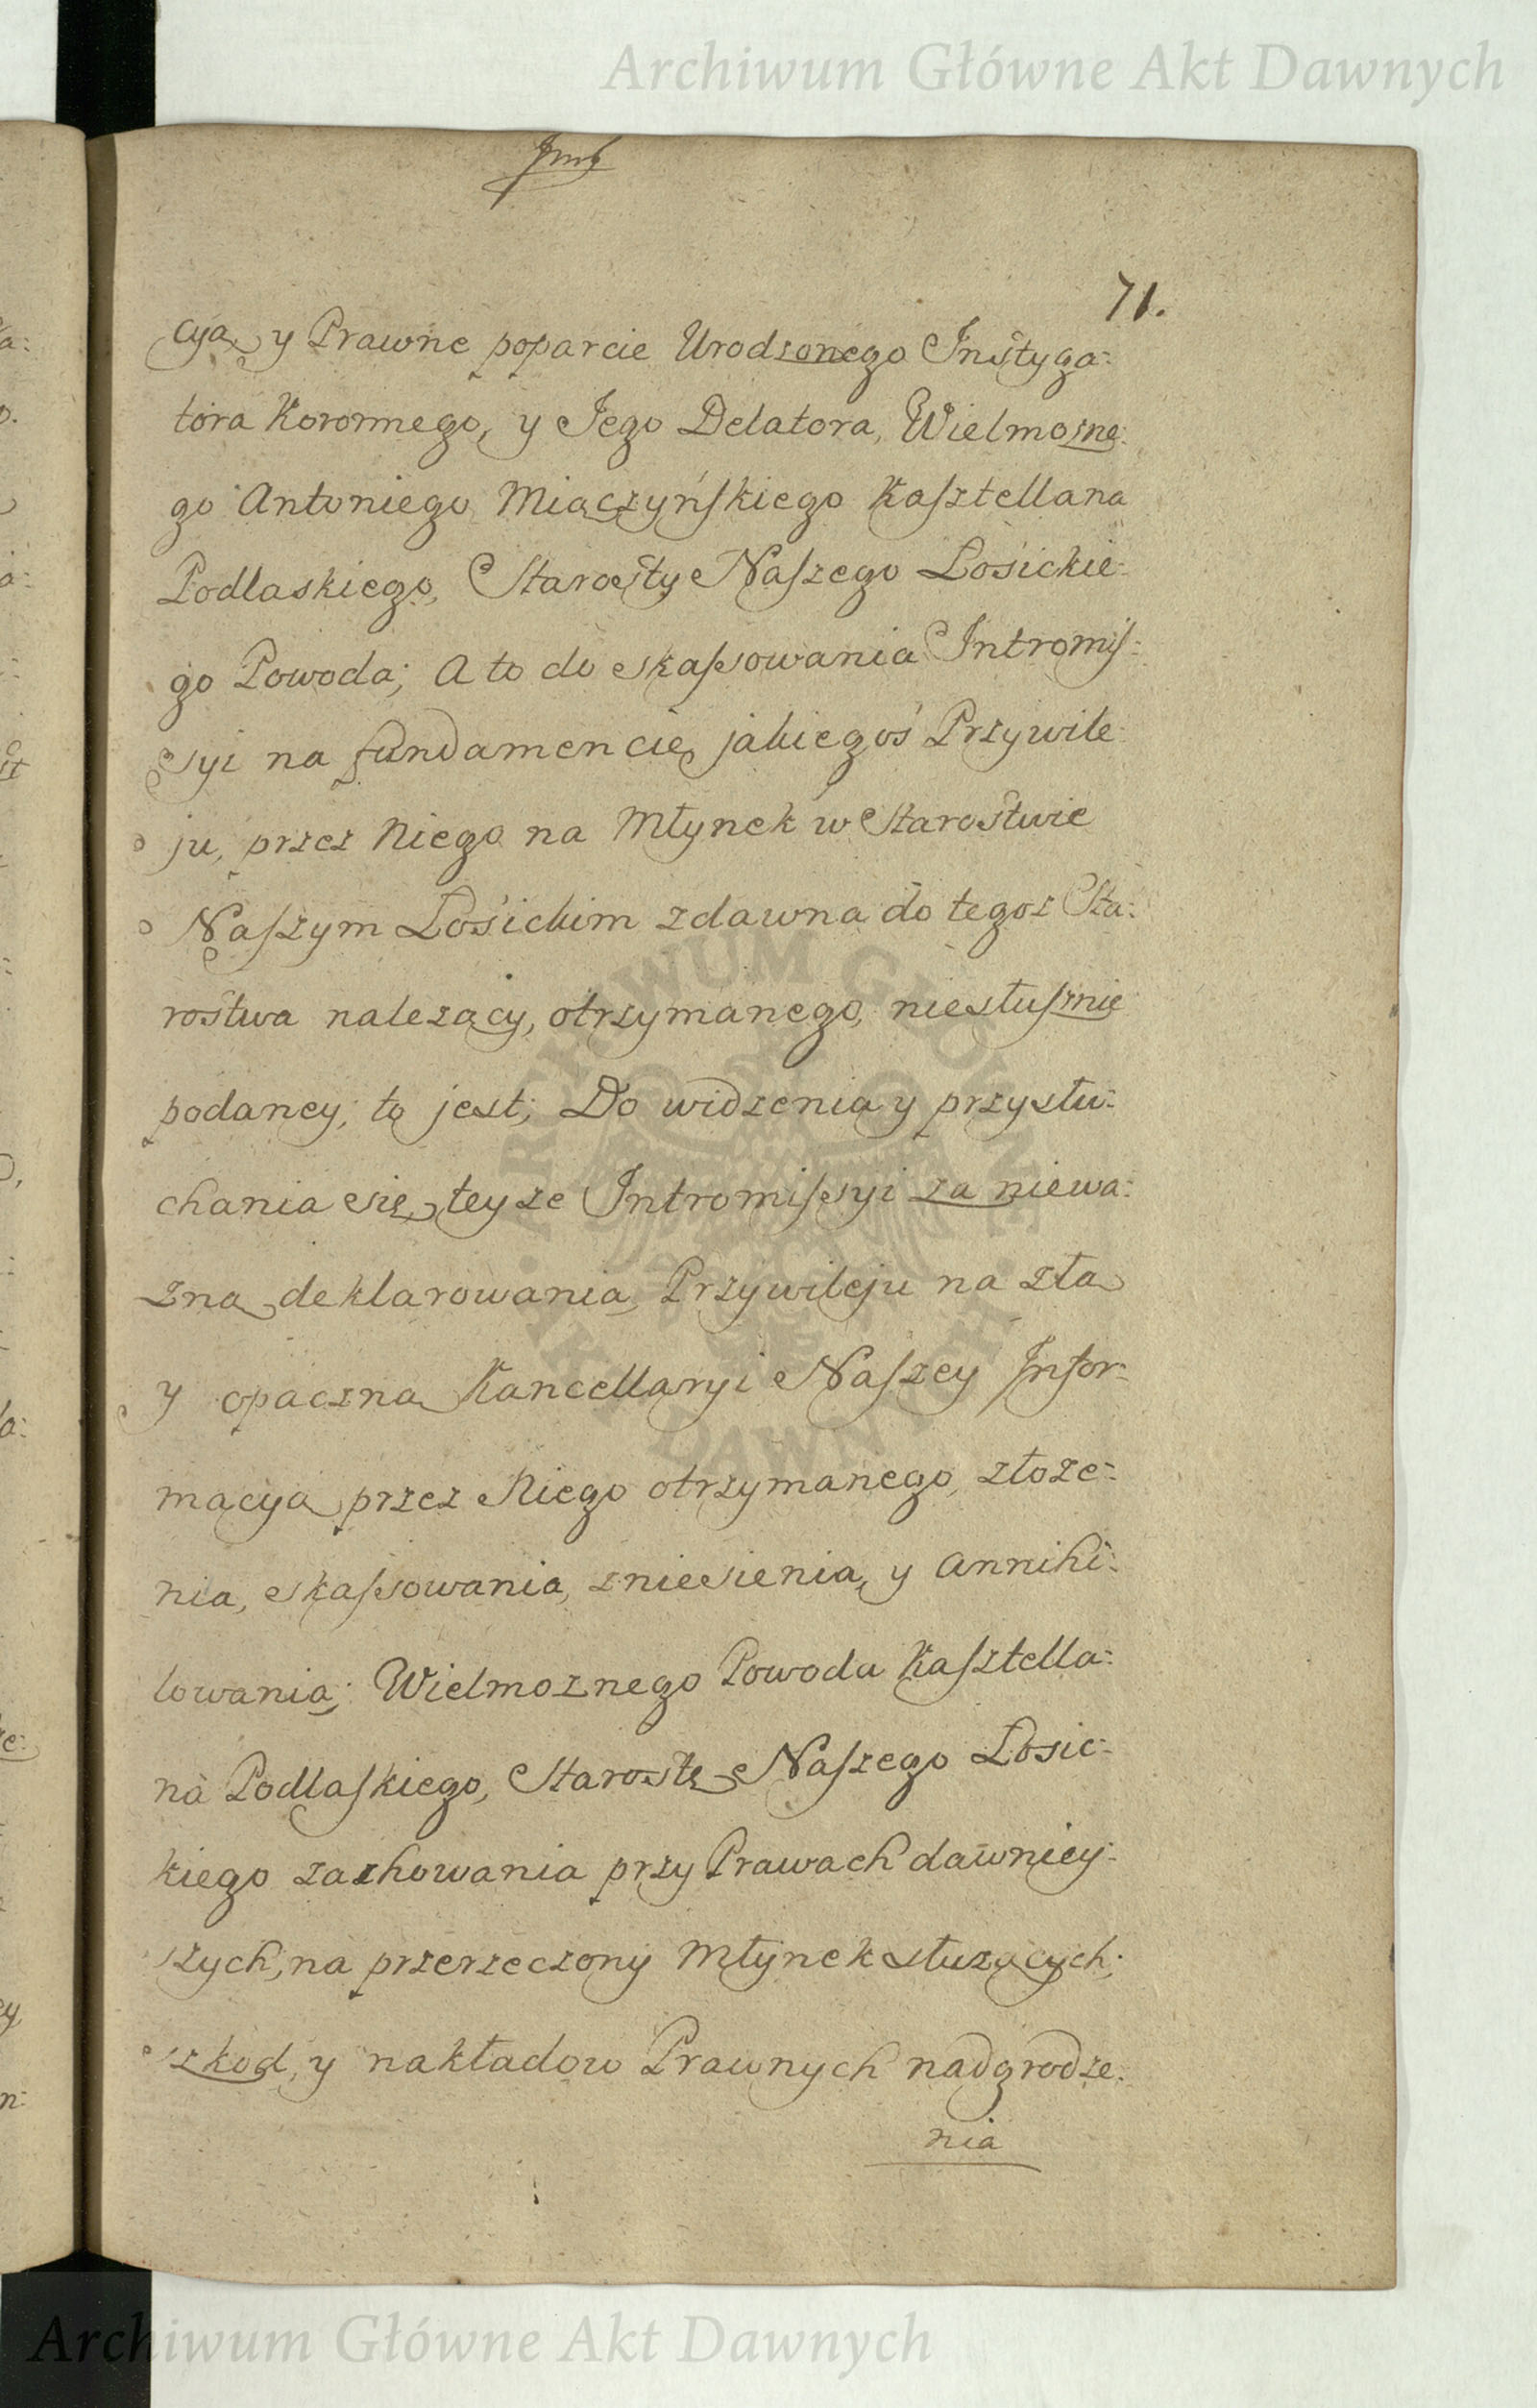 Archiwum Główne Akt Dawnych
71.
cyą y Prawne poparcie Urodzonego Instyga:
tora Koronnego, y Jego Delatora, Wielmożne:
go Antoniego Miączyńskiego Kasztellana
Podlaskiego, Starosty Naszego Łosickie:
go Powoda; A to do skassowania Intromis:
syi na fundamencie jakiegoś Przywile:
ju, przez Niego na Młynek w Starostwie
Naszym Łosickim zdawna do tegoz Sta:
rostwa nalezący, otrzymanego, niesłusznie
podaney; to jest; Do widzenia y przysłu:
chania się teyze Intromissyi za niewa:
zną deklarowania, Przywileju na złą
y opaczną Kancellaryi Naszey Infor:
macyą przez Niego otrzymanego, złoze:
nia, skassowania, zniesienia, y Annihi:
lowania; Wielmoznego Powoda Kasztella:
na Podlaskiego, Starostę Naszego Łosic:
kiego zachowania przy Prawach dawniey:
szych, na przerzeczony Młynek słuzących;
szkod, y nakładow Prawnych nadgrodze:
nia
ARCHIWUM GŁÓWNE AKT DAWNYCH
Archiwum Główne Akt Dawnych